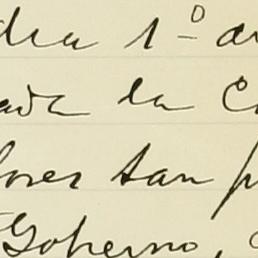 dia 1º de
ada la C
ores tan p
Goberno,